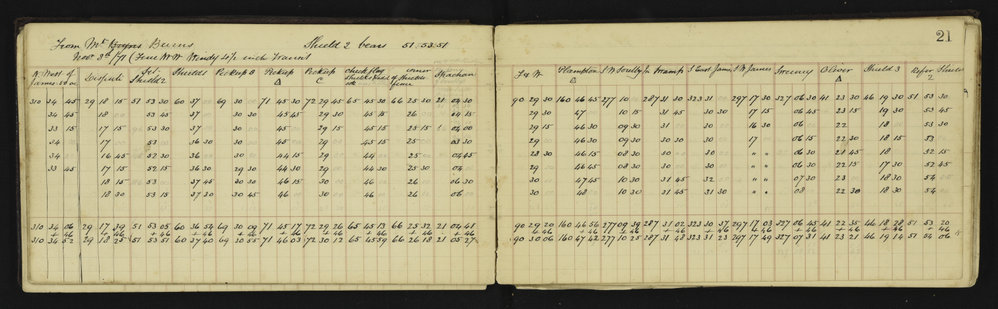 21
From Mt Burns Shield 2 bears 51.53.51
Novr 8th /71 (Fine W.W. Windy
Dispute Shields Pickup B Pickup Δ Pickup C check flag corner Strachan Plampton Δ J East James J W James Greeny Oliver Δ Shield 3 Refer Shield 2
310 34 45 29 18 15 51 53 30 60 37 00 69 30 00 71 45 30 72 29 45 65 45 30 66 25 30 21 04 30 90 29 30 160 46 45 277 10 00 287 31 30 323 31 00 297 17 30 327 06 30 41 23 30 46 19 30 51 53 30
34 45 18 00 53 45 37 30 30 45 45 29 30 45 15 26 04 15 29 30 47 10 15 31 45 30 30 17 15 06 45 23 15 19 30 53 45
33 15 17 15 53 30 37 30 45 29 15 45 15 25 15 04 00 29 15 46 30 09 30 31 30 16 30 06 22 18 30 53 30
34 17 53 36 30 30 45 29 45 15 25 03 30 29 46 30 09 30 30 30 30 17 06 15 22 30 18 15 53
34 16 45 52 30 36 30 44 15 29 44 25 04 45 28 30 46 15 08 30 30 30 " " 06 30 21 45 18 52 15
33 45 17 15 52 15 36 30 29 30 44 30 29 44 30 25 30 04 29 46 45 08 30 30 30 30 " " 06 30 22 15 17 30 52 45
18 15 53 37 45 30 46 15 30 46 26 06 30 30 47 45 10 30 31 45 32 " " 07 30 23 18 30 54
18 30 53 15 37 30 30 45 46 30 46 26 06 30 48 10 30 31 45 31 30 " " 08 22 30 18 30 54
310 34 06 29 17 39 51 53 05 60 36 54 69 30 09 71 45 17 72 29 26 65 45 13 66 25 32 21 04 41 90 29 20 160 46 56 277 09 39 287 31 02 323 30 37 297 17 03 327 06 45 41 22 35 46 18 28 51 53 20
+46 +46 +46 +46 +46 +46 +46 +46 +46 +46 +46 +46 +46 +46 +46 +46 +46 +46 +46 +46
310 34 52 29 18 25 51 53 51 60 37 40 69 30 55 71 46 03 72 30 12 65 45 59 66 26 18 21 05 27 90 30 06 160 47 42 277 10 25 287 31 48 323 31 23 297 17 49 327 07 31 41 23 21 46 19 14 51 54 06